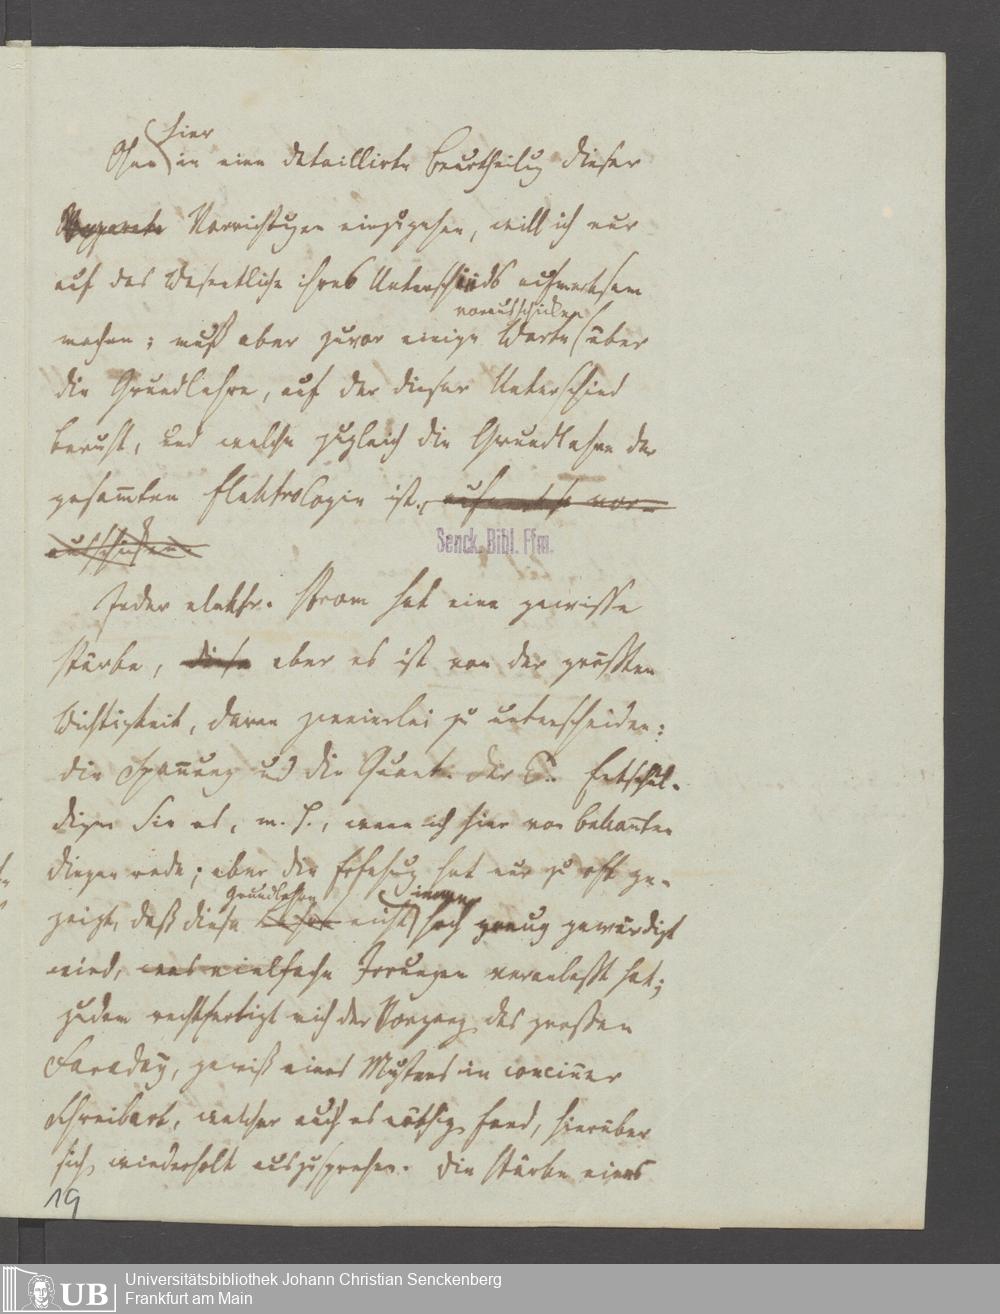 hier
Ohne in eine detaillirte Beurtheilug dieser
Apparate Vorrichtugen einzugehen, will ich nur
auf das Wesentliche ihres Unterschieds aufmerksam
vorausschicken
machen; muß aber zuvor einige Worte über
die Grundlehre, auf der dieser Unterschied
beruht, und welche zugleich die Grundlehre der
gesam̅ten Elektrologie ist.
ausschicken.
Jeder elektr. Strom hat eine gewisse
Stärke, diese aber es ist von der größten
Wichtigkeit, daran zweierlei zu unterscheiden:
die Span̅ung und die Quant. der E. Entschul-
digen Sie es, m. H., wenn ich hier von bekan̅ten
Dingen rede; aber die Erfahrug hat nur zu oft ge-
Grundlehre immer
zeigt, daß diese Lehre nicht hoch genug gewürdigt
wird, was vielfache Irrungen veranlaßt hat;
zudem rechtfertigt mich der Vorgang des großen
Faraday, gewiß eines Musters in concin̅er
Schreibart, welcher auch es nöthig fand, hierüber
sich wiederholt auszusprechen. Die Stärke eines
19
Senck. Bibl. Ffm.
UB
Universitätsbibliothek Johann Christian Senckenberg
Frankfurt am Main